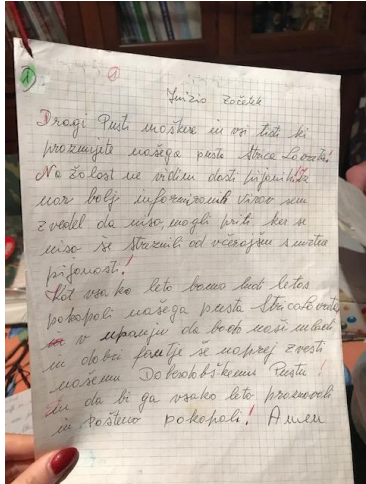 1 1
Inizio Začetek
Dragi Pusti maškre in vsi tisti ki
praznujete našega pusta Strica Lovreta!
Na žalost ne vidim dosti pijanih! Iz
nar bolj informiranih virov sem
zvedel da niso mogli priti, ker se
niso se straznili od včerajšnje smrtne
pijanosti!
Kot vsako leto bomo tudi letos
pokopali našega pusta Strica Lovreta
v upanju da bodo naši mladi
in dobri fantje še naprej zvesti
našemu Pustu!
in da bi ga vsako leto praznovali
in pošteno pokopali! Amen